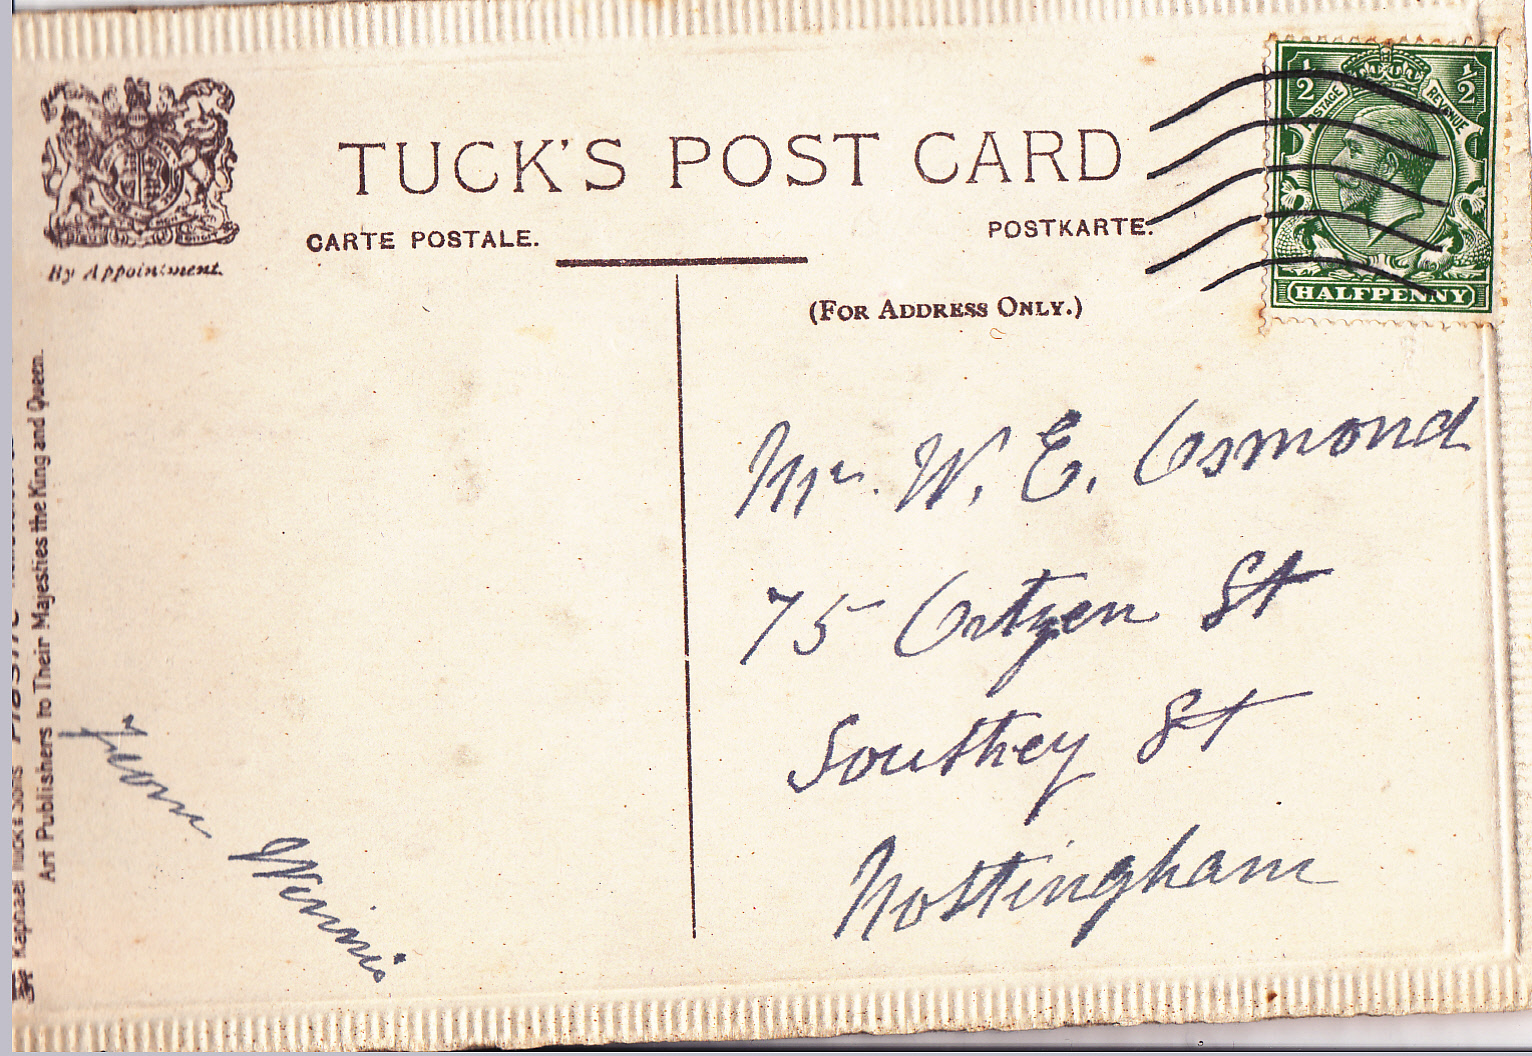 TUCK'S POST CARD
CARTE POSTALE.
POSTKARTE.
By Appointment.
(FOR ADDRESS ONLY.)
½ ½
POSTAGE REVENUE
HALFPENNY
Art Publishers to Their Majesties the King and Queen.
Raphael Tuck & Sons
Mrs. W. E. Osmond
75 St
Southey St
Nottingham
From Winnie